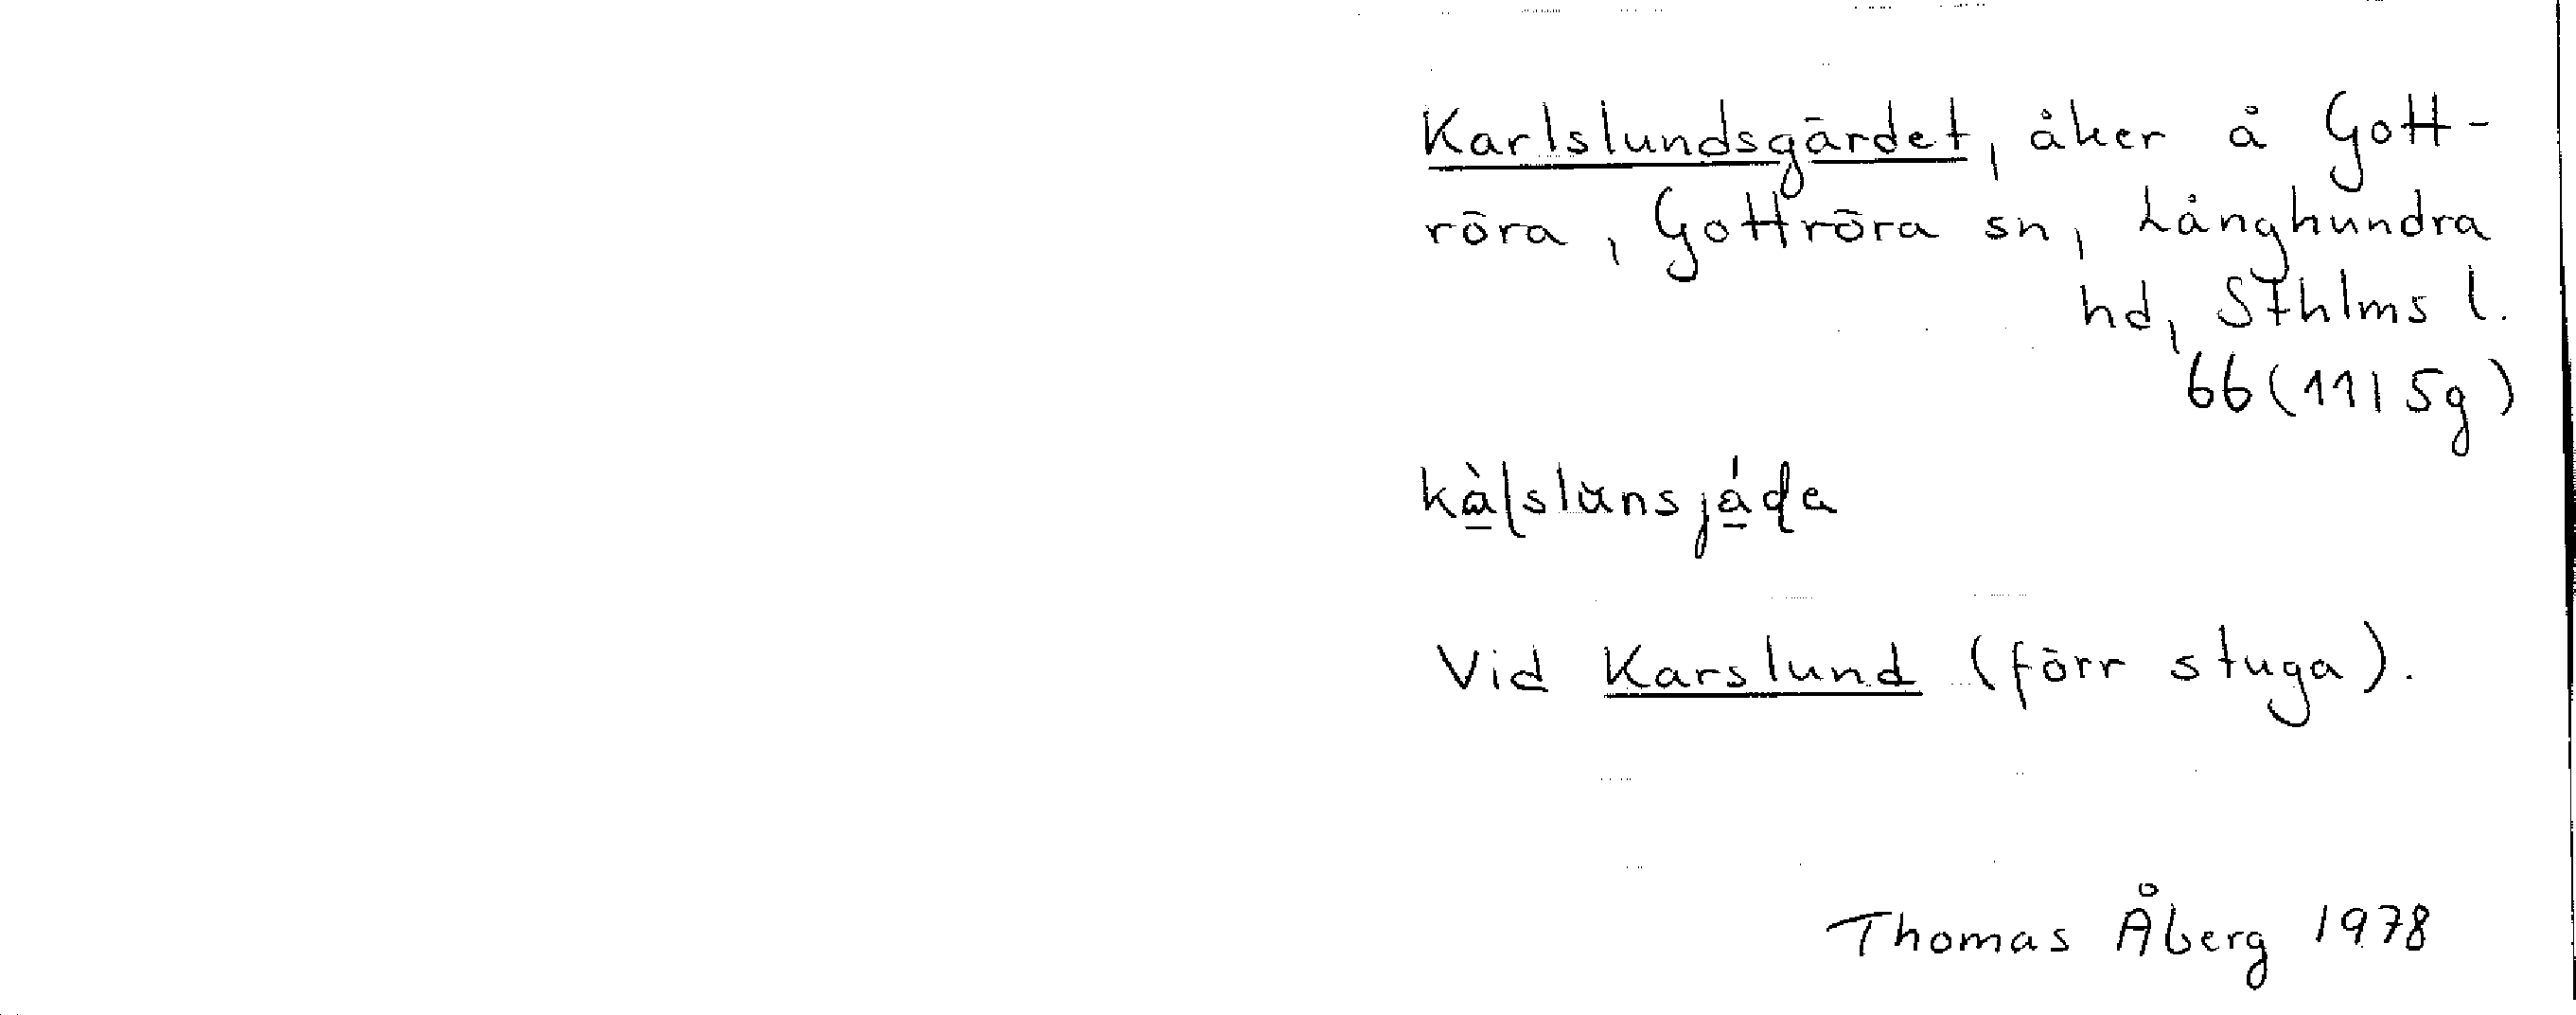 Karlslundsgärdet, åker å Gott-
röra, Gottröra sn, Långhundra
hd, Sthlms l.
66(11I5g)
Vid Karslund (förr stuga).
Thomas Åberg 1978